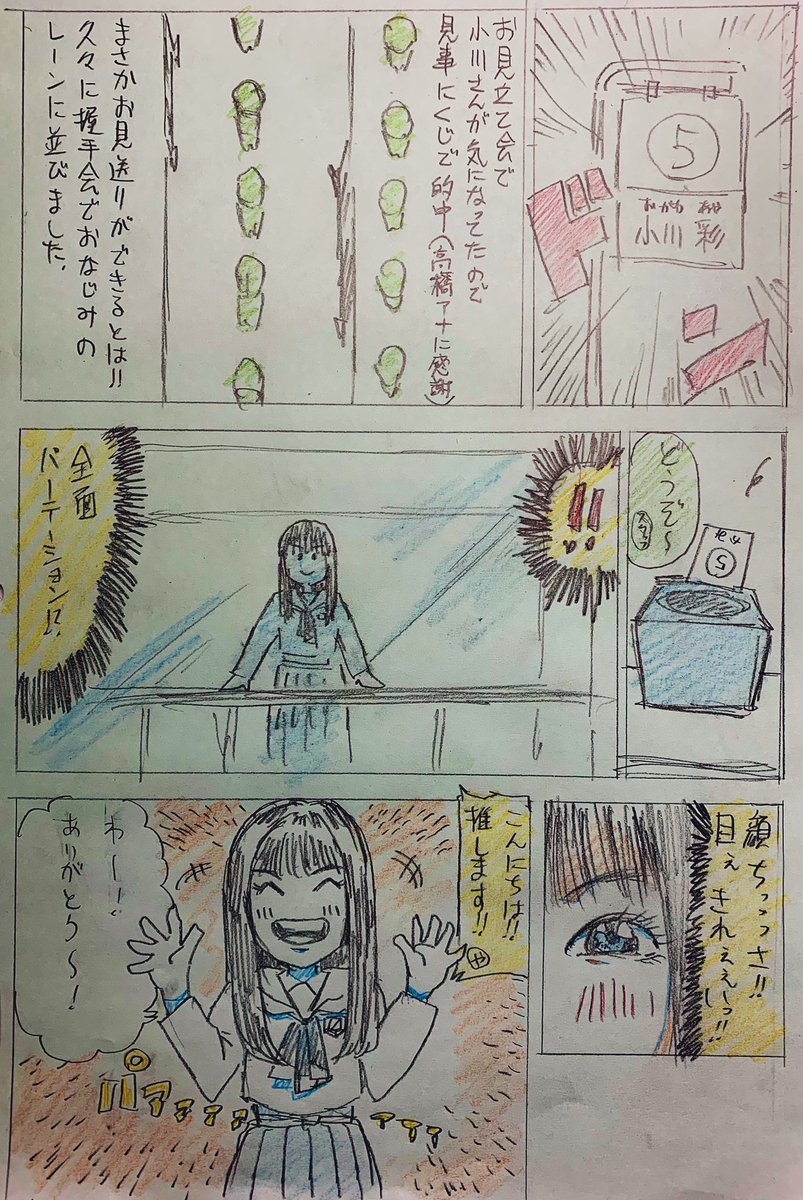 ⑤
おがわ あや
小川 彩
ド
お見立て会で
小川さんが気になってたので
見事にくじで的中(高橋アナに感謝)
まさかお見送りができるとは!!
久々に握手会でおなじみの
レーンに並びました。
どうぞ〜
スタッフ
⑤
!!
全面
パーテーション!?
顔ちっっさ!!
目ぇ きれぇぇいっ!!
こんにちは!!
推します!!
や
わー!
ありがとう〜!
パアァァァァァァ